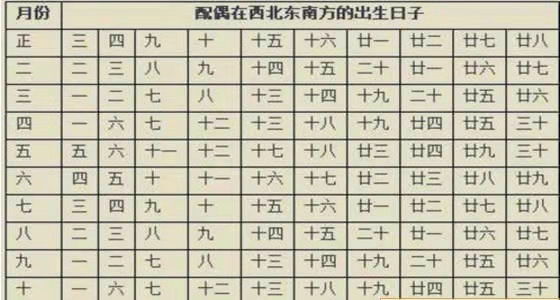 月份 配偶在西北东南方的出生日子
正 三 四 九 十 十五 十六 廿一 廿二 廿七 廿八
二 二 三 八 九 十四 十五 二十 廿一 廿六 廿七
三 一 二 七 八 十三 十四 十九 二十 廿五 廿六
四 一 六 七 十二 十三 十八 十九 廿四 廿五 三十
五 五 六 十一 十二 十七 十八 廿三 廿四 廿九 三十
六 四 五 十 十一 十六 十七 廿二 廿三 廿八 廿九
七 三 四 九 十 十五 十六 廿一 廿二 廿七 廿八
八 二 三 八 九 十四 十五 二十 廿一 廿六 廿七
九 一 二 七 八 十三 十四 十九 二十 廿五 廿六
十 一 六 七 十二 十三 十八 十九 廿四 廿五 三十